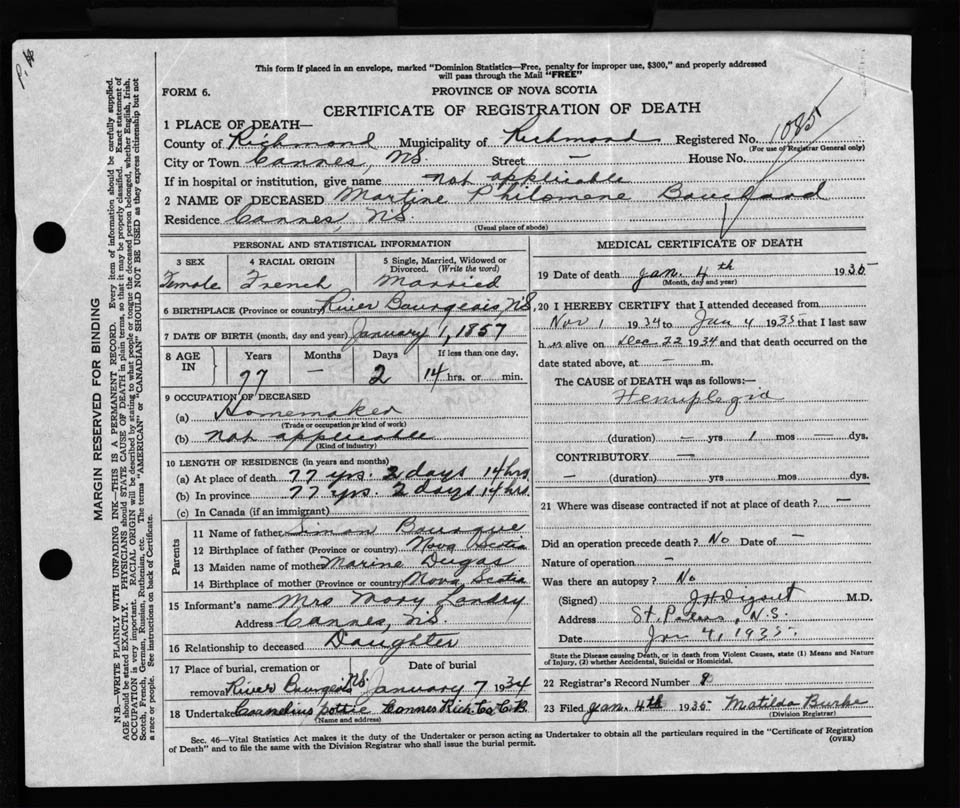 This form if placed in an envelope, marked "Dominion Statistics—Free, penalty for improper use, $300," and properly addressed
will pass through the Mail "FREE"
FORM 6. PROVINCE OF NOVA SCOTIA
CERTIFICATE OF REGISTRATION OF DEATH
1 PLACE OF DEATH—
County of Richmond Municipality of Richmond Registered No. 1085
(For use of Registrar General only)
City or Town Cannes, N.S. Street — House No.
If in hospital or institution, give name not applicable
2 NAME OF DECEASED Martine Philomene
Residence Cannes, N.S.
(Usual place of abode)
PERSONAL AND STATISTICAL INFORMATION
3 SEX 4 RACIAL ORIGIN 5 Single, Married, Widowed or
Divorced. (Write the word)
Female French Married
6 BIRTHPLACE (Province or country) River Bourgeois, N.S.
7 DATE OF BIRTH (month, day and year) January 1, 1857
8 AGE IN Years Months Days If less than one day,
77 — 2 14 hrs. or min.
9 OCCUPATION OF DECEASED
(a) Homemaker
(Trade or occupation or kind of work)
(b) not applicable
(Kind of industry)
10 LENGTH OF RESIDENCE (in years and months)
(a) At place of death 77 yrs. 2 days 14 hrs
(b) In province 77 yrs. 2 days 14 hrs
(c) In Canada (if an immigrant)
Parents
11 Name of father Simon Bourque
12 Birthplace of father (Province or country) Nova Scotia
13 Maiden name of mother Marine Dugas
14 Birthplace of mother (Province or country) Nova Scotia
15 Informant's name Mrs Mary Landry
Address Cannes, N.S.
16 Relationship to deceased Daughter
17 Place of burial, cremation or Date of burial
removal River Bourgeois N.S. January 7 1934
18 Undertaker Cornelius Pottie Cannes Rich. Co. C.B.
(Name and address)
MEDICAL CERTIFICATE OF DEATH
19 Date of death Jan. 4th 1935
(Month, day and year)
20 I HEREBY CERTIFY that I attended deceased from
Nov 1 1934 to Jan 4 1935 that I last saw
h er alive on Dec 22 1934 and that death occurred on the
date stated above, at — m.
The CAUSE of DEATH was as follows:—
Hemiplegia
(duration) — yrs 1 mos — dys.
CONTRIBUTORY —
— (duration) yrs mos dys.
21 Where was disease contracted if not at place of death? —
Did an operation precede death? No Date of —
Nature of operation —
Was there an autopsy? No
(Signed) M.D.
Address St. Peters, N.S.
Date Jan 4, 1935.
State the Disease causing Death, or in death from Violent Causes, state (1) Means and Nature
of Injury, (2) whether Accidental, Suicidal or Homicidal.
22 Registrar's Record Number 8
23 Filed Jan. 4th 1935 Matilda Burke
(Division Registrar)
Sec. 46—Vital Statistics Act makes it the duty of the Undertaker or person acting as Undertaker to obtain all the particulars required in the "Certificate of Registration
of Death" and to file the same with the Division Registrar who shall issue the burial permit. (OVER)
MARGIN RESERVED FOR BINDING
N.B.—WRITE PLAINLY WITH UNFADING INK—THIS IS A PERMANENT RECORD. Every item of information should be carefully supplied.
AGE should be stated EXACTLY. PHYSICIANS should STATE CAUSE OF DEATH in plain terms, so that it may be properly classified. Exact statement of
OCCUPATION is very important. RACIAL ORIGIN will be described by stating to what people or tongue the deceased person belonged, whether English, Irish,
Scotch, French, German, Russian, Ruthenian, etc. The terms "AMERICAN" or "CANADIAN" SHOULD NOT BE USED as they express citizenship but not
a race or people. See instructions on back of Certificate.